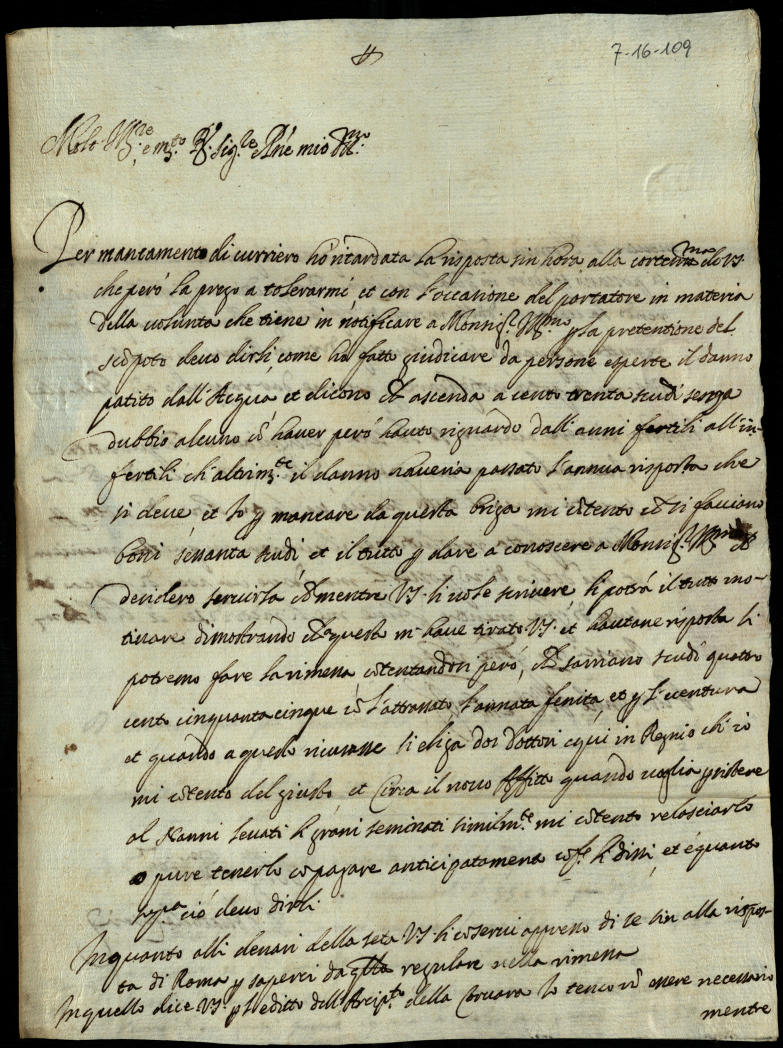 7-16-109
Molto Ill.re e m.to R.do Sig.re P.ne mio Oss.mo
Per mancamento di curriero hò ritardata la risposta sin hora alla cortesiss.ma di VS
che però la prego a tolerarmi et con l'occasione del portatore in materia
della volunta che tiene in notificare a Monsig.r p la pretentione del
scoputo devo dirli come ho fatto giudicare da persone esperte il danno
patito dall'Acqua, et dicono ch ascenda a cento trenta scudi senza
dubbio alcuno cõ haver però hauto riguardo dall'anni fertili all'in-
fertili ch'altrim.te il danno haveria passato l'annua risposta che
si deve, et Io p mancare da questa briga mi cõtento ch si facciano
boni sessanta scudi, et il tutto p dare a conoscere a Monsig.r ch
desidero servirla cõ mentre VS li vole scrivere, li potrà il tutto mo-
tivare dimostrando ch questo m'have tirato VS, et hautane risposta si
potremo fare la rimessa cõtentandosi però, ch sarriano scudi quattro
cento cinquanta cinque cõ l'attrassato, l'annata fenita, et p l'ventura
et quando a questo ricusasse si eliga doi dottori equi in Regnio ch'io
mi cõtento del giusto, et Circa il novo affitto quando voglia persistere
al Nanni levati li grani seminati similm.te mi cõtento relasciarlo
o pure tenerlo cõ pagare anticipatamente cõf. li dissi, et è quanto
sop.a ciò devo dirli
Inquanto alli denari della seta VS li cõservi appresso di se sin alla rispos-
ta di Roma p saperci da q.lla regulare nella rimessa
Inquello dice VS p l'editto dell'Arcip.te della Corvara Io tengo nõ essere necessario
mentre